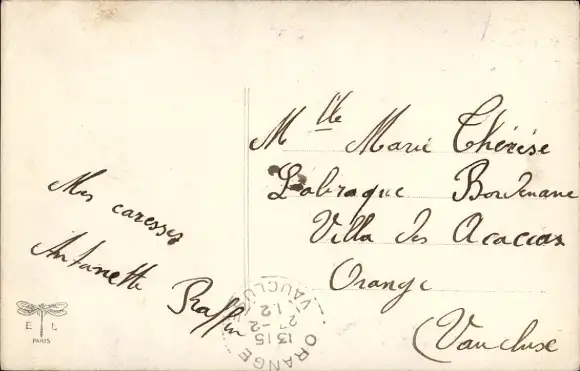 Mes caresses
Antoinette
Raffin
Mlle Marie Thérèse
Labraque Bordenave
Villa des Acacias
Orange
(Vaucluse
E L
PARIS
ORANGE
VAUCLUSE
13 15